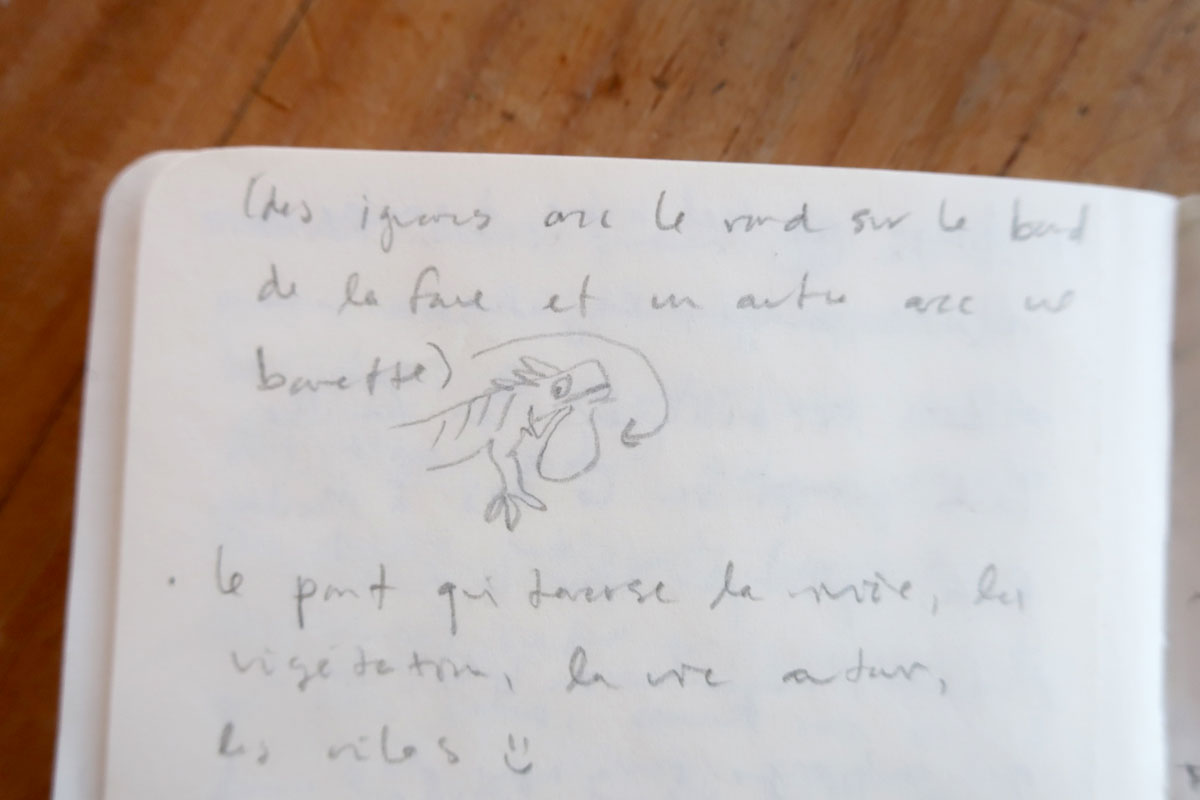 (des iguanes avec le rond sur le bord
de la face et un autre avec une
bavette)
. le pont qui traverse la rivière, la
végétation, la vie autour,
les vibes :)